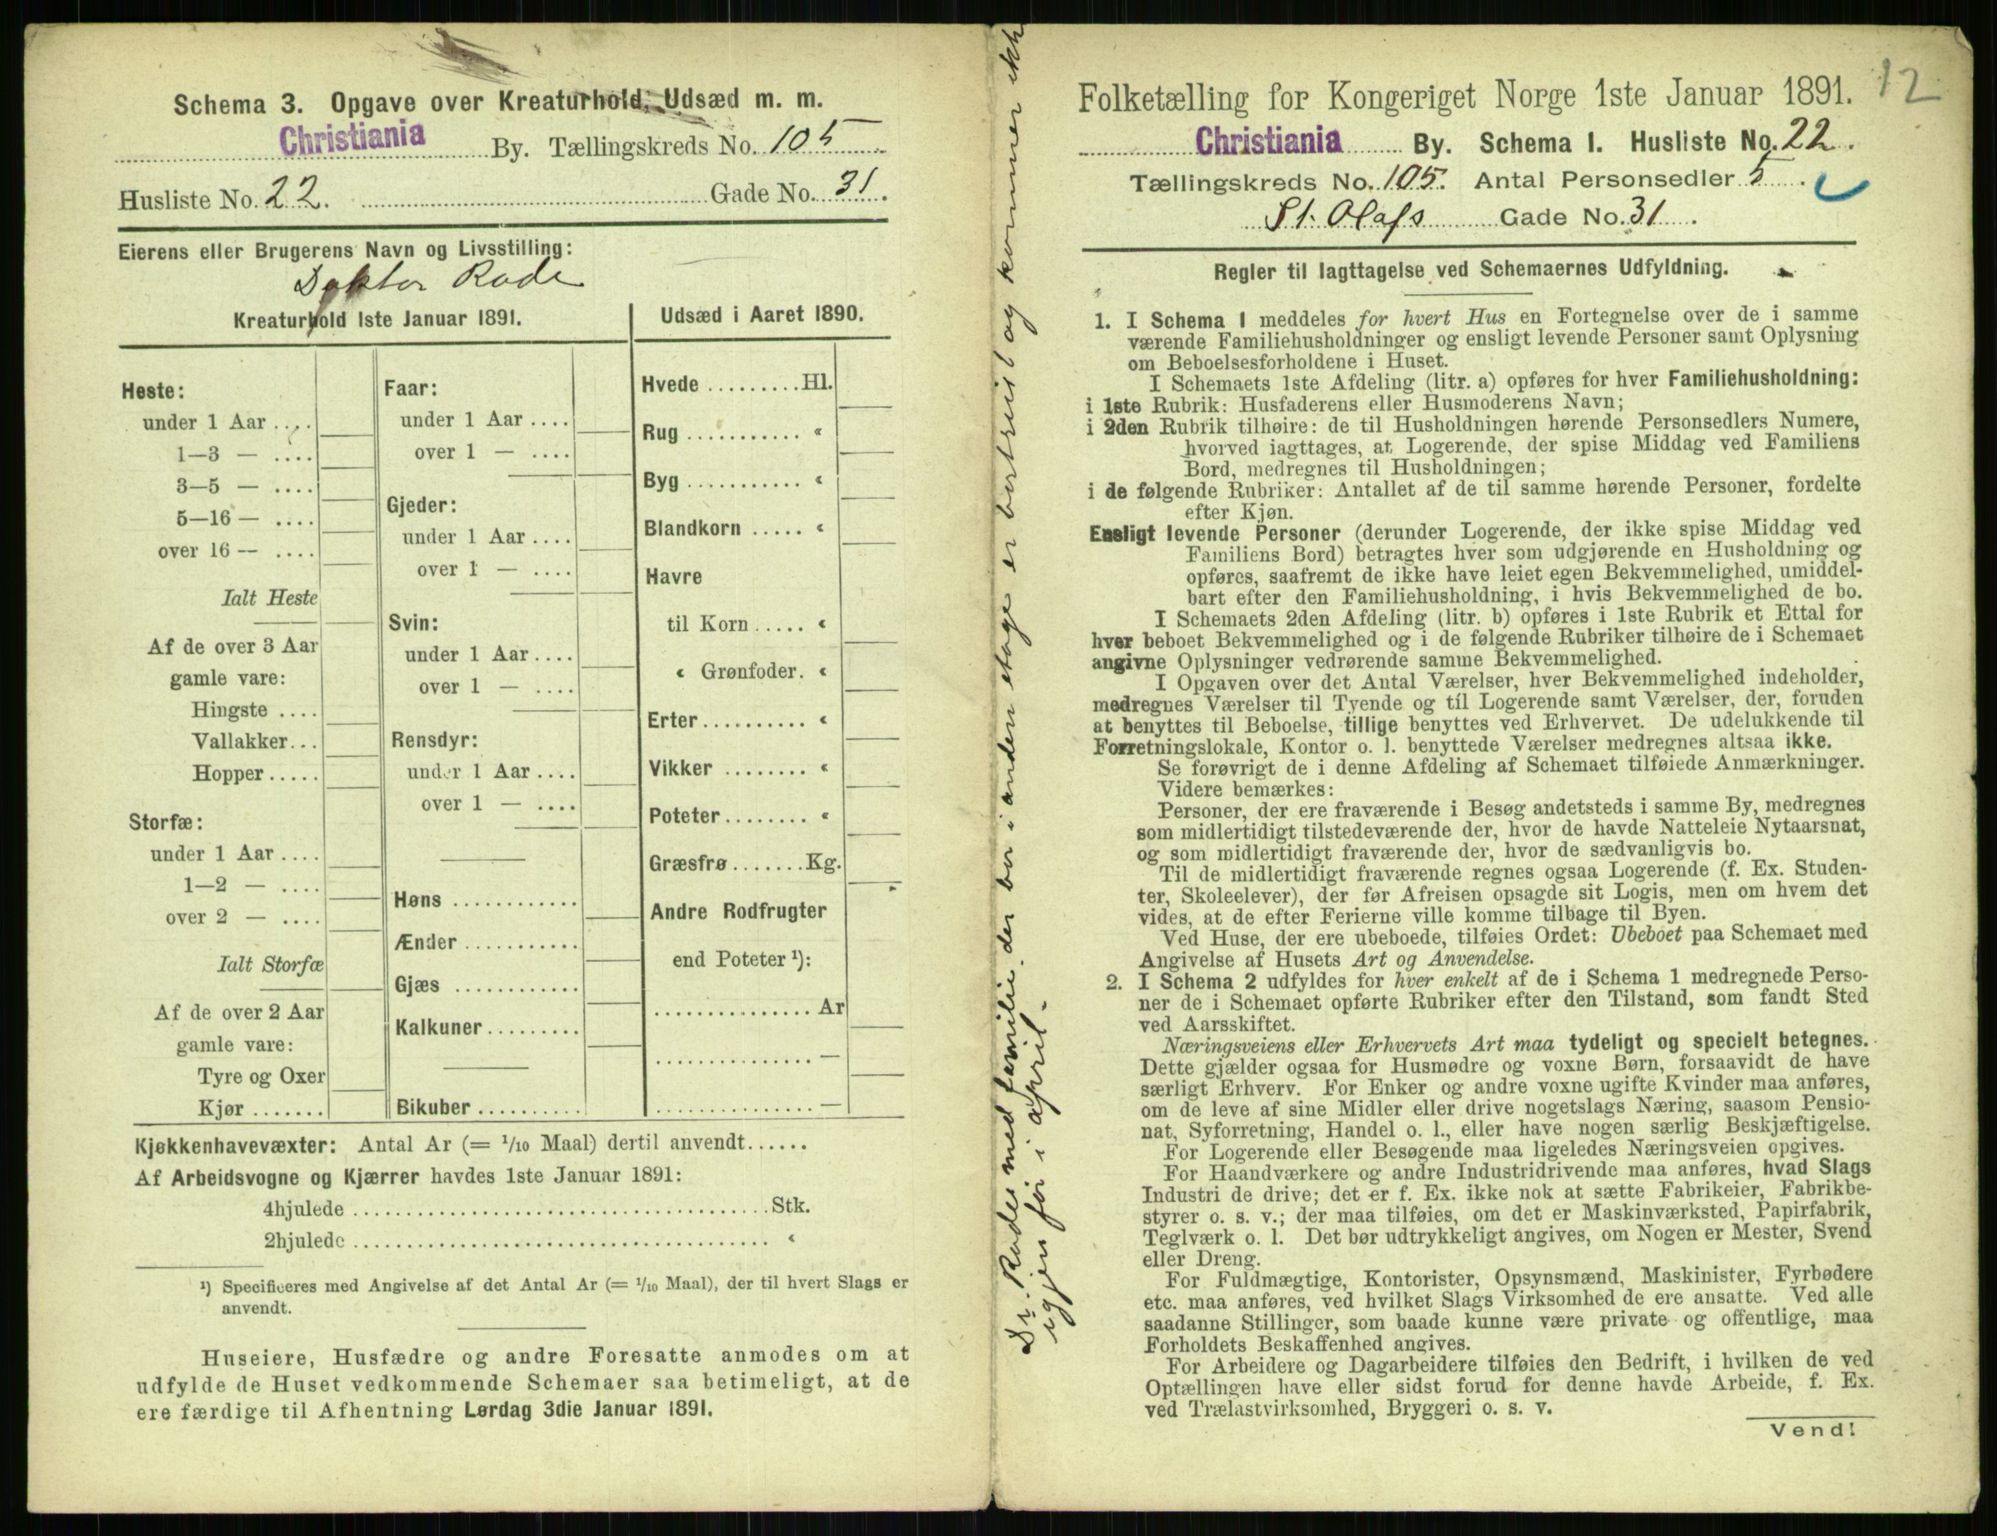 Schema 3. Opgave over Kreaturhold, Udsæd m. m.
Christiania By. Tællingskreds No. 105
Husliste No. 22. Gade No. 31.
Eierens eller Brugerens Navn og Livsstilling:
Doktor Rode
Kreaturhold 1ste Januar 1891.
Heste:
under 1 Aar ....
1—3 — ....
3—5 — ....
5—16 — ....
over 16 — ....
Ialt Heste
Af de over 3 Aar
gamle vare:
Hingste ....
Vallakker...
Hopper.....
Storfæ:
under 1 Aar ....
1—2 — ....
over 2 — ....
Ialt Storfæ
Af de over 2 Aar
gamle vare:
Tyre og Oxer
Kjør .......
Faar:
under 1 Aar ....
over 1 — ....
Gjeder:
under 1 Aar ....
over 1 — ....
Svin:
under 1 Aar ....
over 1 — ....
Rensdyr:
under 1 Aar ....
over 1 — ....
Høns ............
Ænder ...........
Gjæs ............
Kalkuner.........
Bikuber ..........
Udsæd i Aaret 1890.
Hvede .........Hl.
Rug ........... «
Byg ........... «
Blandkorn ..... «
Havre
til Korn ..... «
« Grønfoder. «
Erter.......... «
Vikker ........ «
Poteter ........ «
Græsfrø .......Kg.
Andre Rodfrugter
end Poteter ¹):
............... Ar
............... —
............... —
Kjøkkenhavevæxter: Antal Ar (= 1/10 Maal) dertil anvendt......
Af Arbeidsvogne og Kjærrer havdes 1ste Januar 1891:
4hjulede ........................................Stk.
2hjulede ........................................ «
¹) Specificeres med Angivelse af det Antal Ar (= 1/10 Maal), der til hvert Slags er
anvendt.
Huseiere, Husfædre og andre Foresatte anmodes om at
udfylde de Huset vedkommende Schemaer saa betimeligt, at de
ere færdige til Afhentning Lørdag 3die Januar 1891.
Dr. Rode med familie der bor i anden etage er bortreist og kommer ikke
igjen før i april.
12
Folketælling for Kongeriget Norge 1ste Januar 1891.
Christiania By. Schema I. Husliste No. 22.
Tællingskreds No. 105. Antal Personsedler 5.
St. Olafs Gade No. 31.
Regler til Iagttagelse ved Schemaernes Udfyldning.
1. I Schema 1 meddeles for hvert Hus en Fortegnelse over de i samme
værende Familiehusholdninger og ensligt levende Personer samt Oplysning
om Beboelsesforholdene i Huset.
I Schemaets 1ste Afdeling (litr. a) opføres for hver Familiehusholdning:
i 1ste Rubrik: Husfaderens eller Husmoderens Navn;
i 2den Rubrik tilhøire: de til Husholdningen hørende Personsedlers Numere,
hvorved iagttages, at Logerende, der spise Middag ved Familiens
Bord, medregnes til Husholdningen;
i de følgende Rubriker: Antallet af de til samme hørende Personer, fordelte
efter Kjøn.
Ensligt levende Personer (derunder Logerende, der ikke spise Middag ved
Familiens Bord) betragtes hver som udgjørende en Husholdning og
opføres, saafremt de ikke have leiet egen Bekvemmelighed, umiddel-
bart efter den Familiehusholdning, i hvis Bekvemmelighed de bo.
I Schemaets 2den Afdeling (litr. b) opføres i 1ste Rubrik et Ettal for
hver beboet Bekvemmelighed og i de følgende Rubriker tilhøire de i Schemaet
angivne Oplysninger vedrørende samme Bekvemmelighed.
I Opgaven over det Antal Værelser, hver Bekvemmelighed indeholder,
medregnes Værelser til Tyende og til Logerende samt Værelser, der, foruden
at benyttes til Beboelse, tillige benyttes ved Erhvervet. De udelukkende til
Forretningslokale, Kontor o. l. benyttede Værelser medregnes altsaa ikke.
Se forøvrigt de i denne Afdeling af Schemaet tilføiede Anmærkninger.
Videre bemærkes:
Personer, der ere fraværende i Besøg andetsteds i samme By, medregnes
som midlertidigt tilstedeværende der, hvor de havde Natteleie Nytaarsnat,
og som midlertidigt fraværende der, hvor de sædvanligvis bo.
Til de midlertidigt fraværende regnes ogsaa Logerende (f. Ex. Studen-
ter, Skoleelever), der før Afreisen opsagde sit Logis, men om hvem det
vides, at de efter Ferierne ville komme tilbage til Byen.
Ved Huse, der ere ubeboede, tilføies Ordet: Ubeboet paa Schemaet med
Angivelse af Husets Art og Anvendelse.
2. I Schema 2 udfyldes for hver enkelt af de i Schema 1 medregnede Perso-
ner de i Schemaet opførte Rubriker efter den Tilstand, som fandt Sted
ved Aarsskiftet.
Næringsveiens eller Erhvervets Art maa tydeligt og specielt betegnes.
Dette gjælder ogsaa for Husmødre og voxne Børn, forsaavidt de have
særligt Erhverv. For Enker og andre voxne ugifte Kvinder maa anføres,
om de leve af sine Midler eller drive nogetslags Næring, saasom Pensio-
nat, Syforretning, Handel o. l., eller have nogen særlig Beskjæftigelse.
For Logerende eller Besøgende maa ligeledes Næringsveien opgives.
For Haandværkere og andre Industridrivende maa anføres, hvad Slags
Industri de drive; det er f. Ex. ikke nok at sætte Fabrikeier, Fabrikbe-
styrer o. s. v.; der maa tilføies, om det er Maskinværksted, Papirfabrik,
Teglværk o. l. Det bør udtrykkeligt angives, om Nogen er Mester, Svend
eller Dreng.
For Fuldmægtige, Kontorister, Opsynsmænd, Maskinister, Fyrbødere
etc. maa anføres, ved hvilket Slags Virksomhed de ere ansatte. Ved alle
saadanne Stillinger, som baade kunne være private og offentlige, maa
Forholdets Beskaffenhed angives.
For Arbeidere og Dagarbeidere tilføies den Bedrift, i hvilken de ved
Optællingen have eller sidst forud for denne havde Arbeide, f. Ex.
ved Trælastvirksomhed, Bryggeri o. s. v.
Vend!